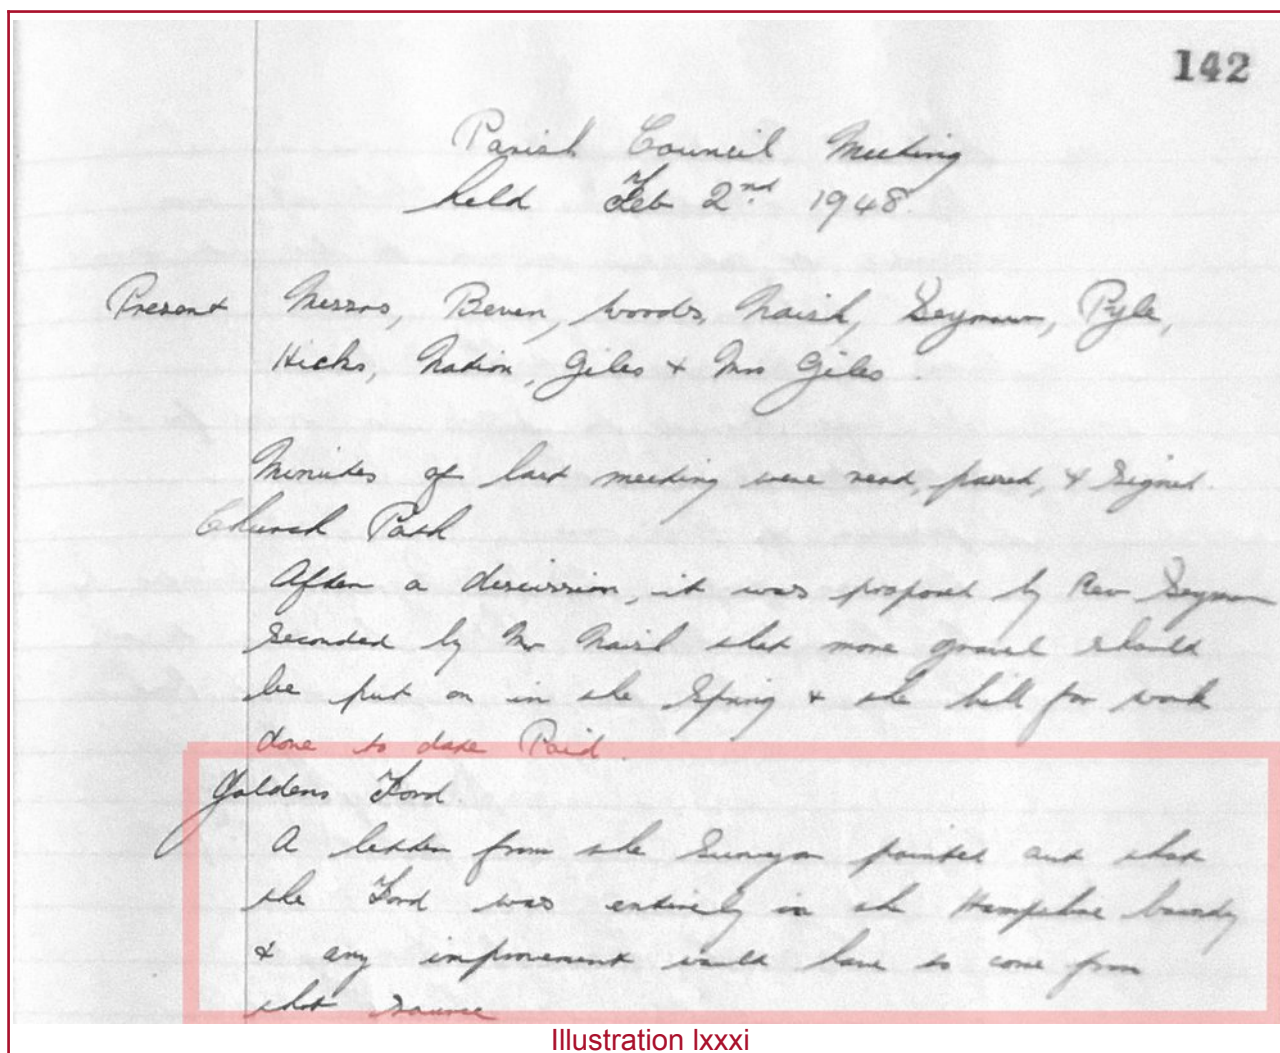 142
Parish Council Meeting
held Feb 2nd 1948.
Present Messrs, Beven, Woods, Naish, Seymour, Pyle,
Hicks, Nation, Giles & Mrs Giles.
Minutes of last meeting were read, passed, & Signed.
Church Path
After a discussion, it was proposed by Rev Seymour
Seconded by Mr Naish that more gravel should
be put on in the Spring & the bill for work
done to date Paid.
Yaldens Ford.
A letter from the Surveyor pointed out that
the Ford was entirely in the Hampshire boundry
& any improvement would have to come from
that source
Illustration lxxxi